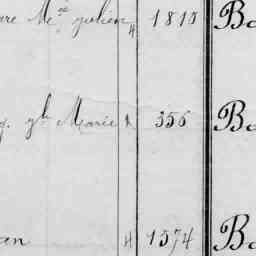 are Me julien H 1810 Ba
Marie 356 Ba
an H 1574 Ba